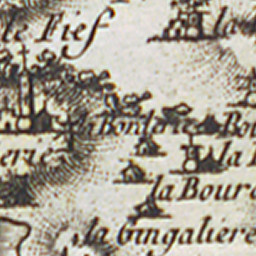 le Fief
la
la Borderie Bou
erie
la
la Bour
la Gingaliere